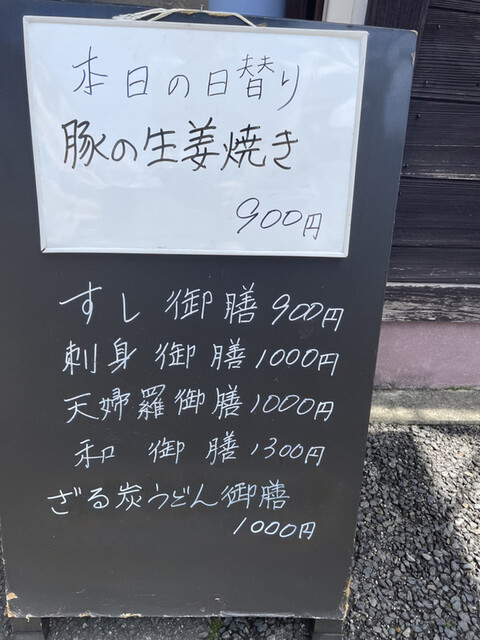 本日の日替り
豚の生姜焼き
900円
すし御膳 900円
刺身御膳 1000円
天婦羅御膳 1000円
和御膳 1300円
ざる炭うどん御膳
1000円